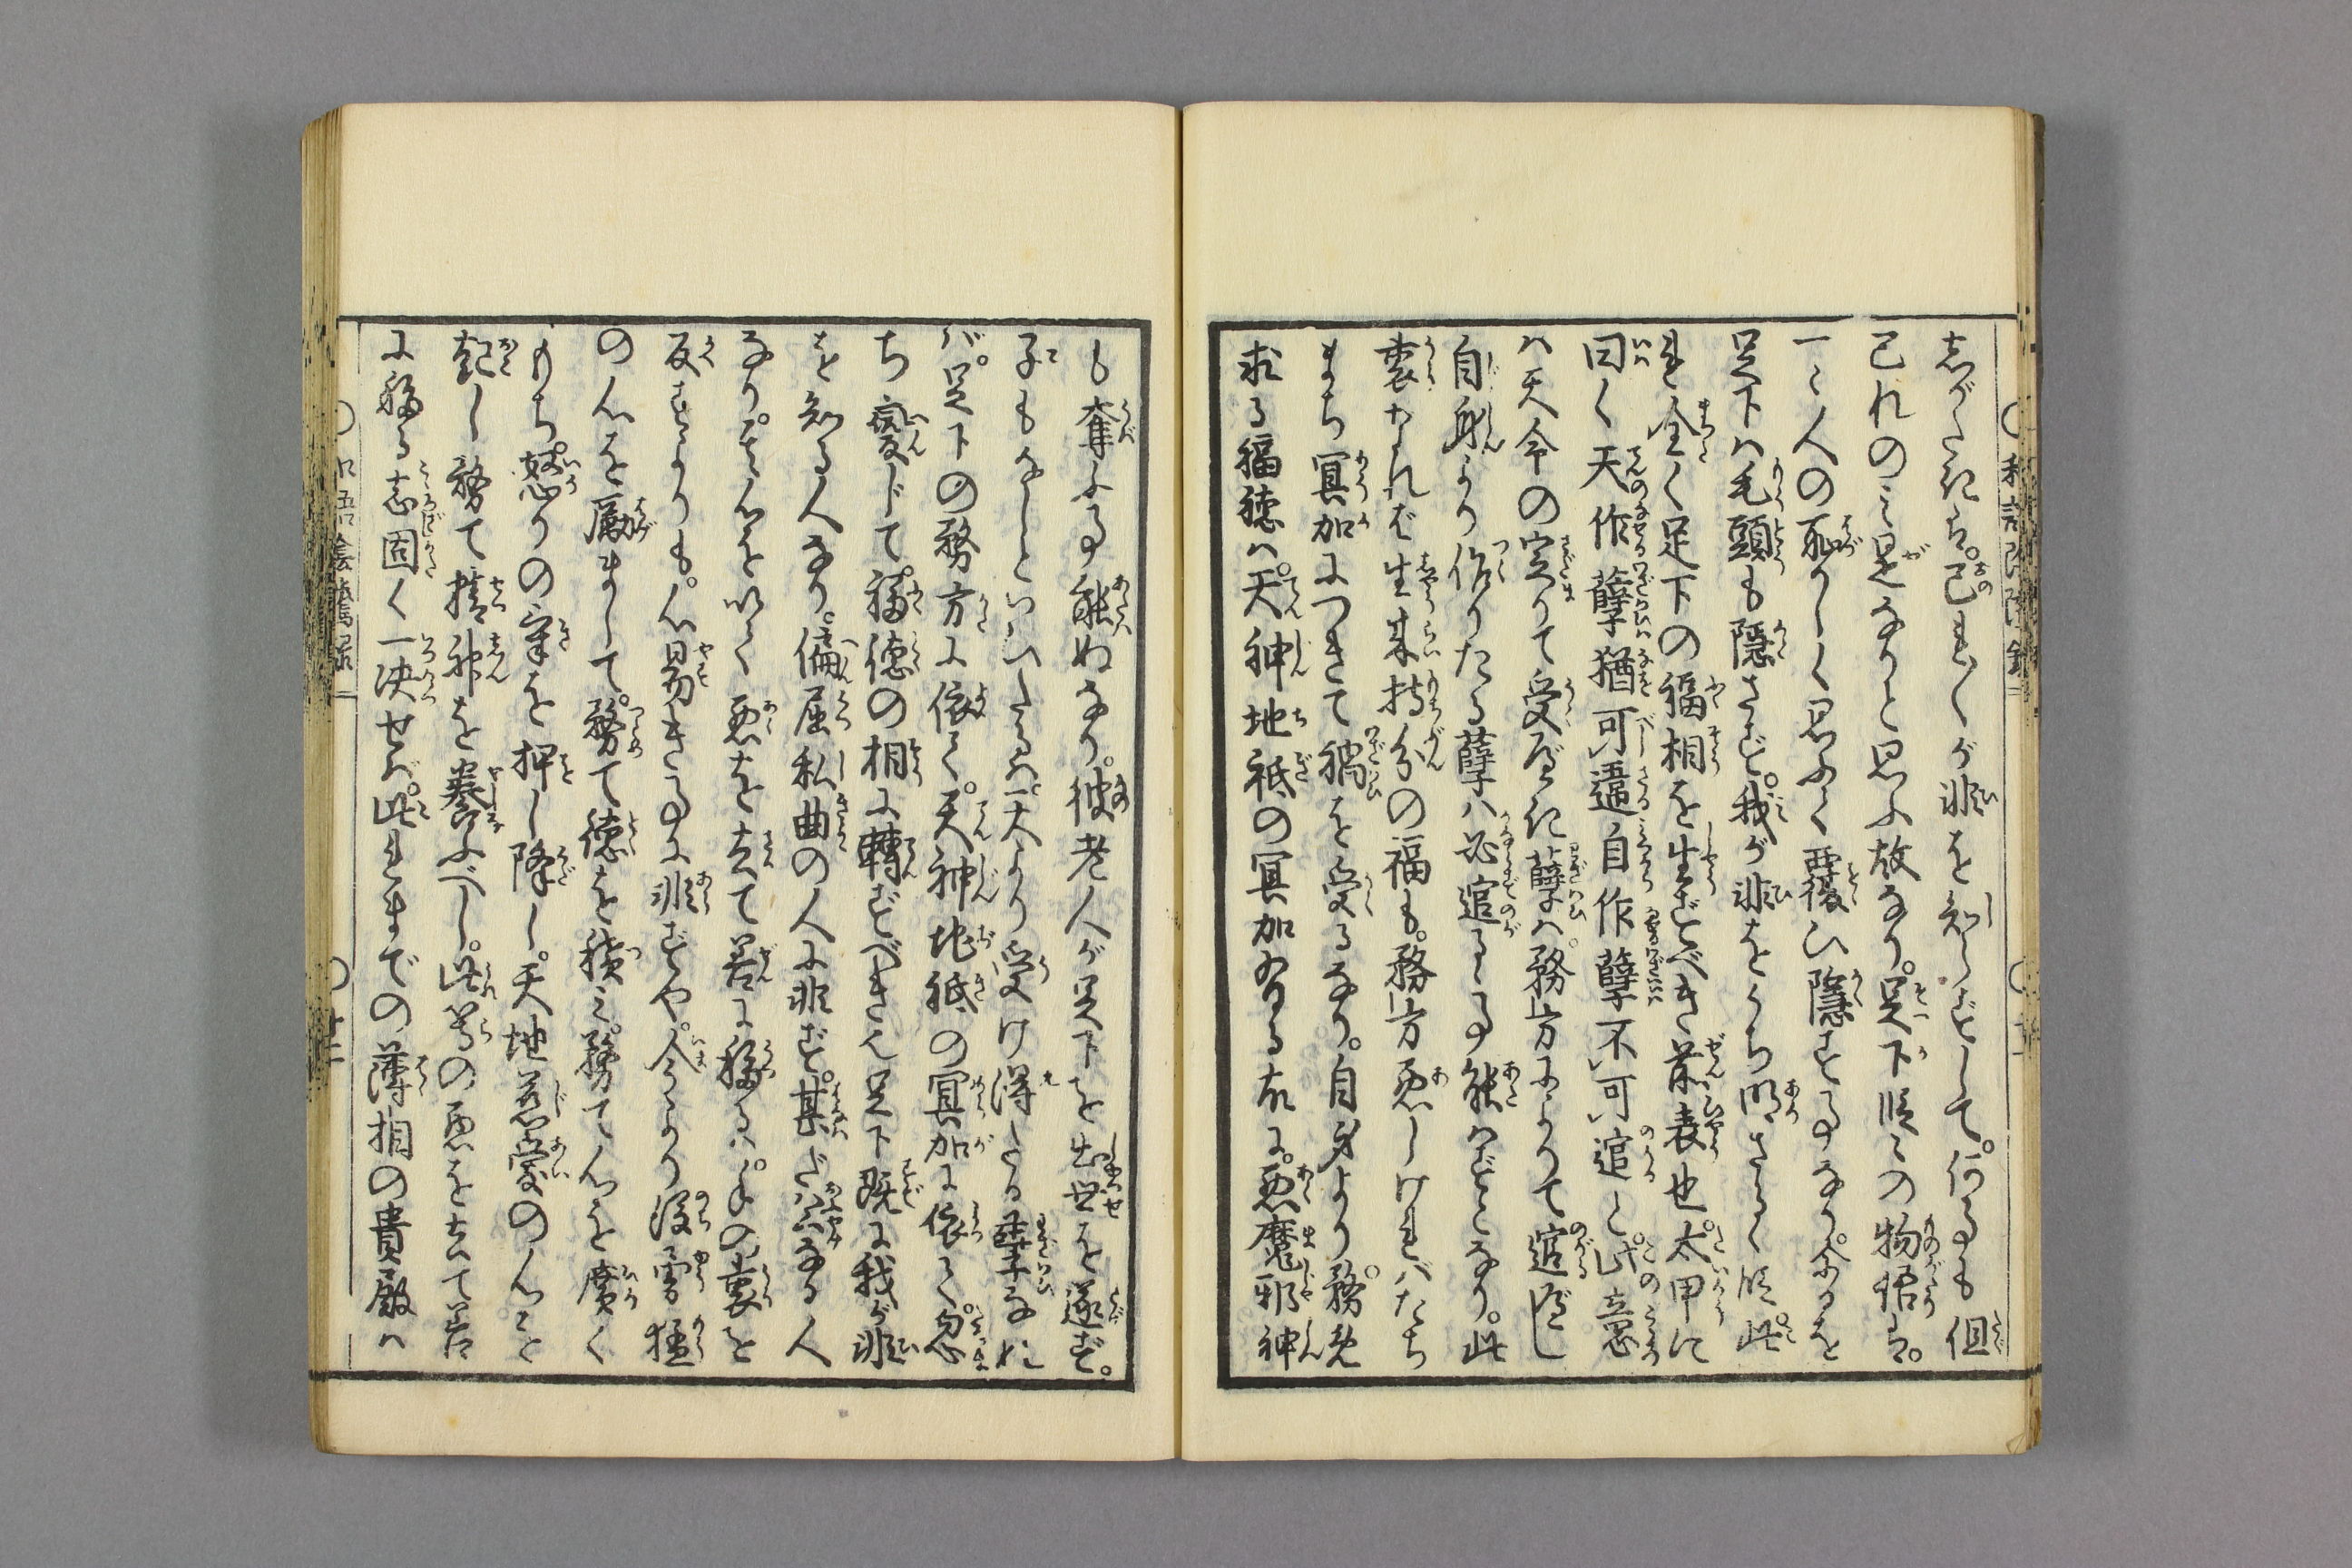 志がたきは。己れ〳〵が非を知らずして。何事も但
己れのミ是なりと思ふ故なり。足下段々の物語は。
一々人の恥かしく思ふて覆ひ隠す事なり。余るを
足下ハ毛頭も隠さず。我が非をうち明さるゝ段。此
れ全く足下の福相を生ずべき前表也。太甲に
曰く天作孽猶可違自作孽不可逭と。此意
ハ天命の定りて受べき孽ハ。務方によりて逭べし
自身より作りたる孽ハ必逭るゝ事能ハずとなり。此
裏なれバ生来持分の福も。務方悪しけれバたち
まち冥加につきて禍を受るなり。自身より務めて
求る福徳ハ。天神地祇の冥加有る故に。悪魔邪神
も奪ふ事能ぬなり。彼老人が足下を出世を遂ず。
子もなしといひたるハ。天より受け得たる孽なれ
バ。足下の務方に依て。天神地祇の冥加に依て。忽
ち変じて。福徳の相に轉ずべきハ足下既に我が非
を知る人なり。偏屈私曲の人に非ず。甚だ公なる人
なり。其心を以て悪を去て善に移るハ。手の裏を
反すよりも。心易き事に非ずや。今より後雪猛
の心を勵まして。務て徳を積ミ。務て心を廣く
もち。怒りの家を押し降し。天地慈愛の心を
起し務て精神を養ふべし。此等の悪を去て善
に移る志固く一決せバ。此れまでの薄相の貴殿ハ